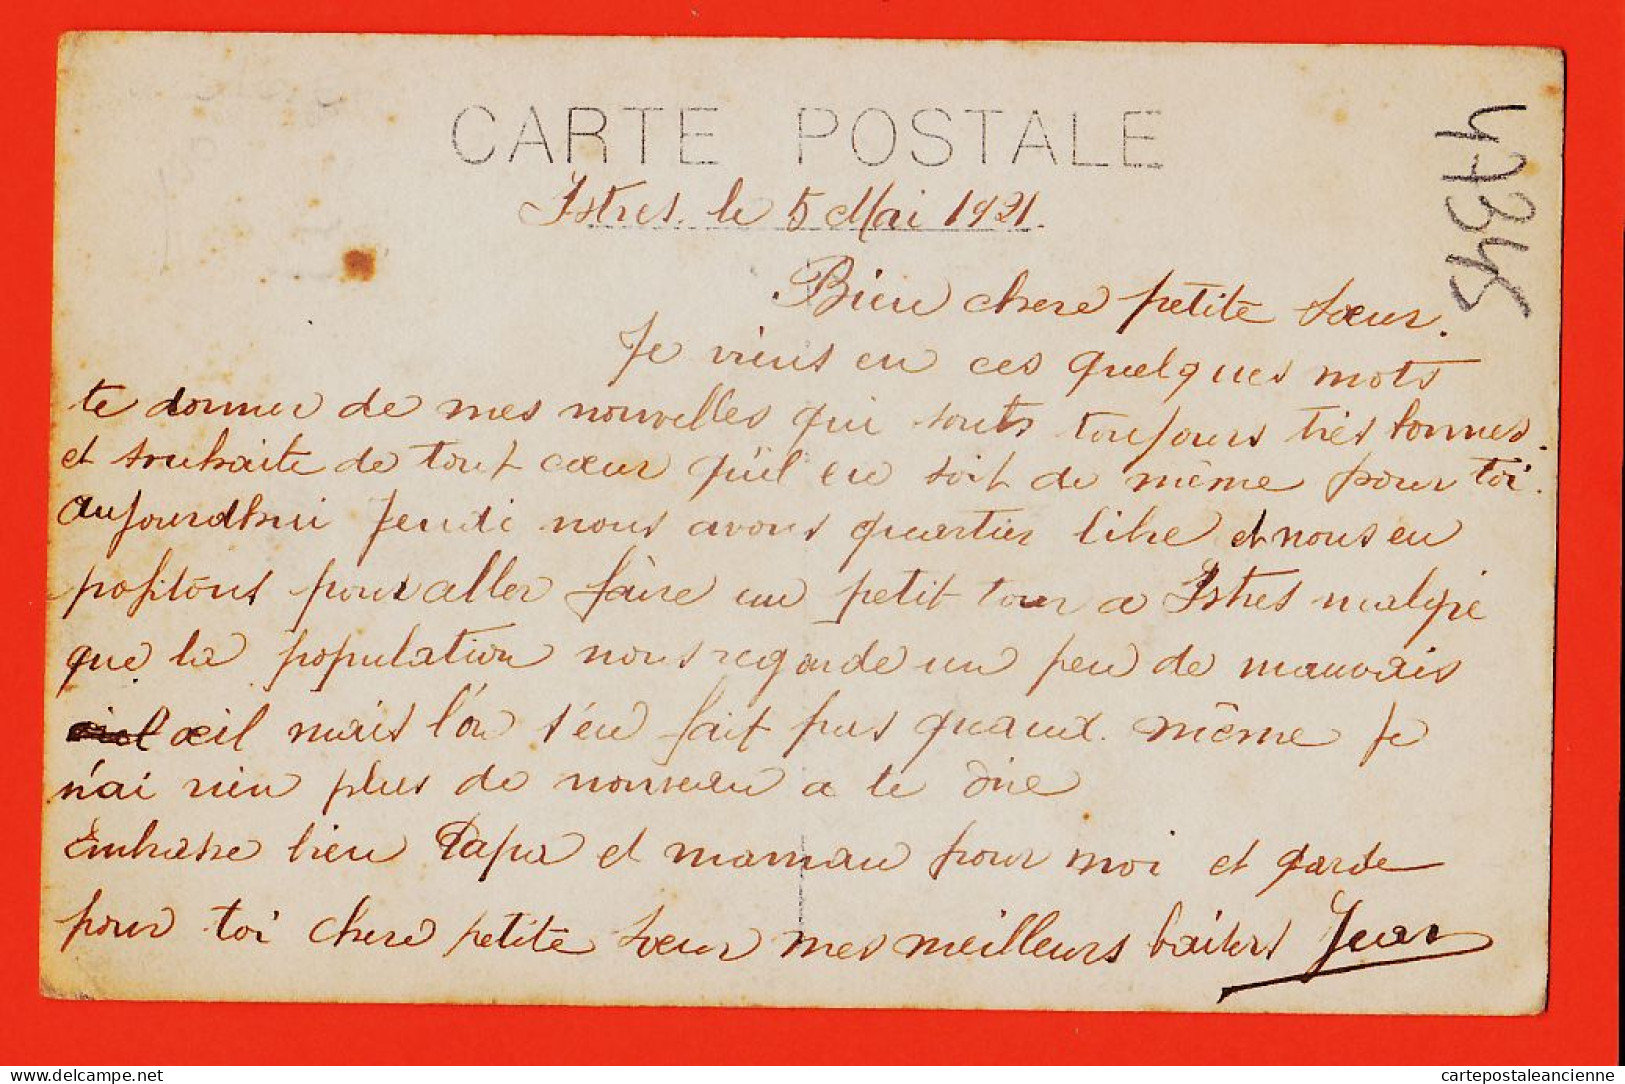 CARTE POSTALE
Istres. le 5 Mai 1921.
47345
Bien chere petite sœur.
Je viens en ces quelques mots
te donner de mes nouvelles qui sonts toujours très bonnes.
et souhaite de tout cœur qu'il en soit de même pour toi.
aujourdhui Jeudi nous avons quartier libre et nous en
profitons pour aller faire un petit tour a Istres malgré
que la population nous regarde un peu de mauvais
œil mais l'on s'en fait pas quand même Je
n'ai rien plus de nouveau a te dire
Embrasse bien Papa et maman pour moi et garde
pour toi chere petite sœur mes meilleurs baisers Jean
Delcampe.net
cartepostaleancienne